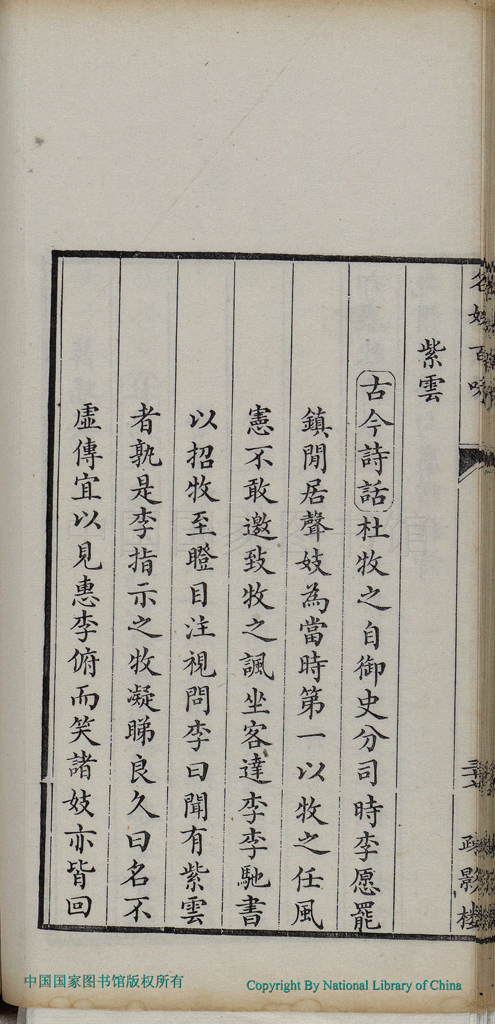 名妓百咏
疏影楼
紫雲
古今詩話杜牧之自御史分司時李愿罷
鎮閒居聲妓為當時第一以牧之任風
憲不敢邀致牧之諷坐客達李李馳書
以招牧至瞪目注視問李曰聞有紫雲
者孰是李指示之牧凝睇良久曰名不
虛傳宜以見惠李俯而笑諸妓亦皆回
中国国家图书馆版权所有
Copyright By National Library of China